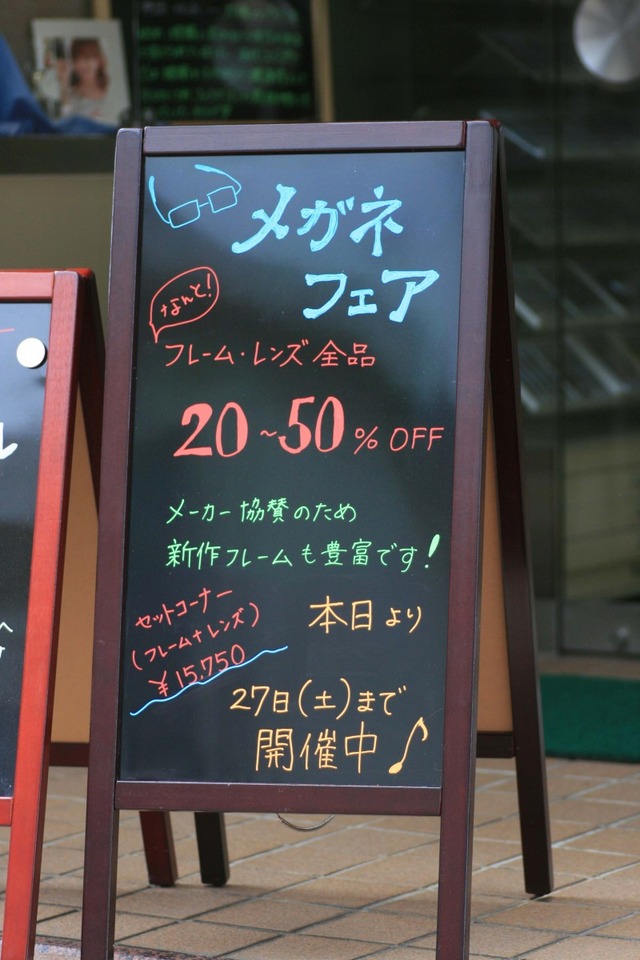 メガネ
フェア
なんと!
フレーム・レンズ全品
20~50% OFF
メーカー協賛のため
新作フレームも豊富です!
セットコーナー
(フレーム+レンズ)
¥15,750
本日より
27日(土)まで
開催中♪